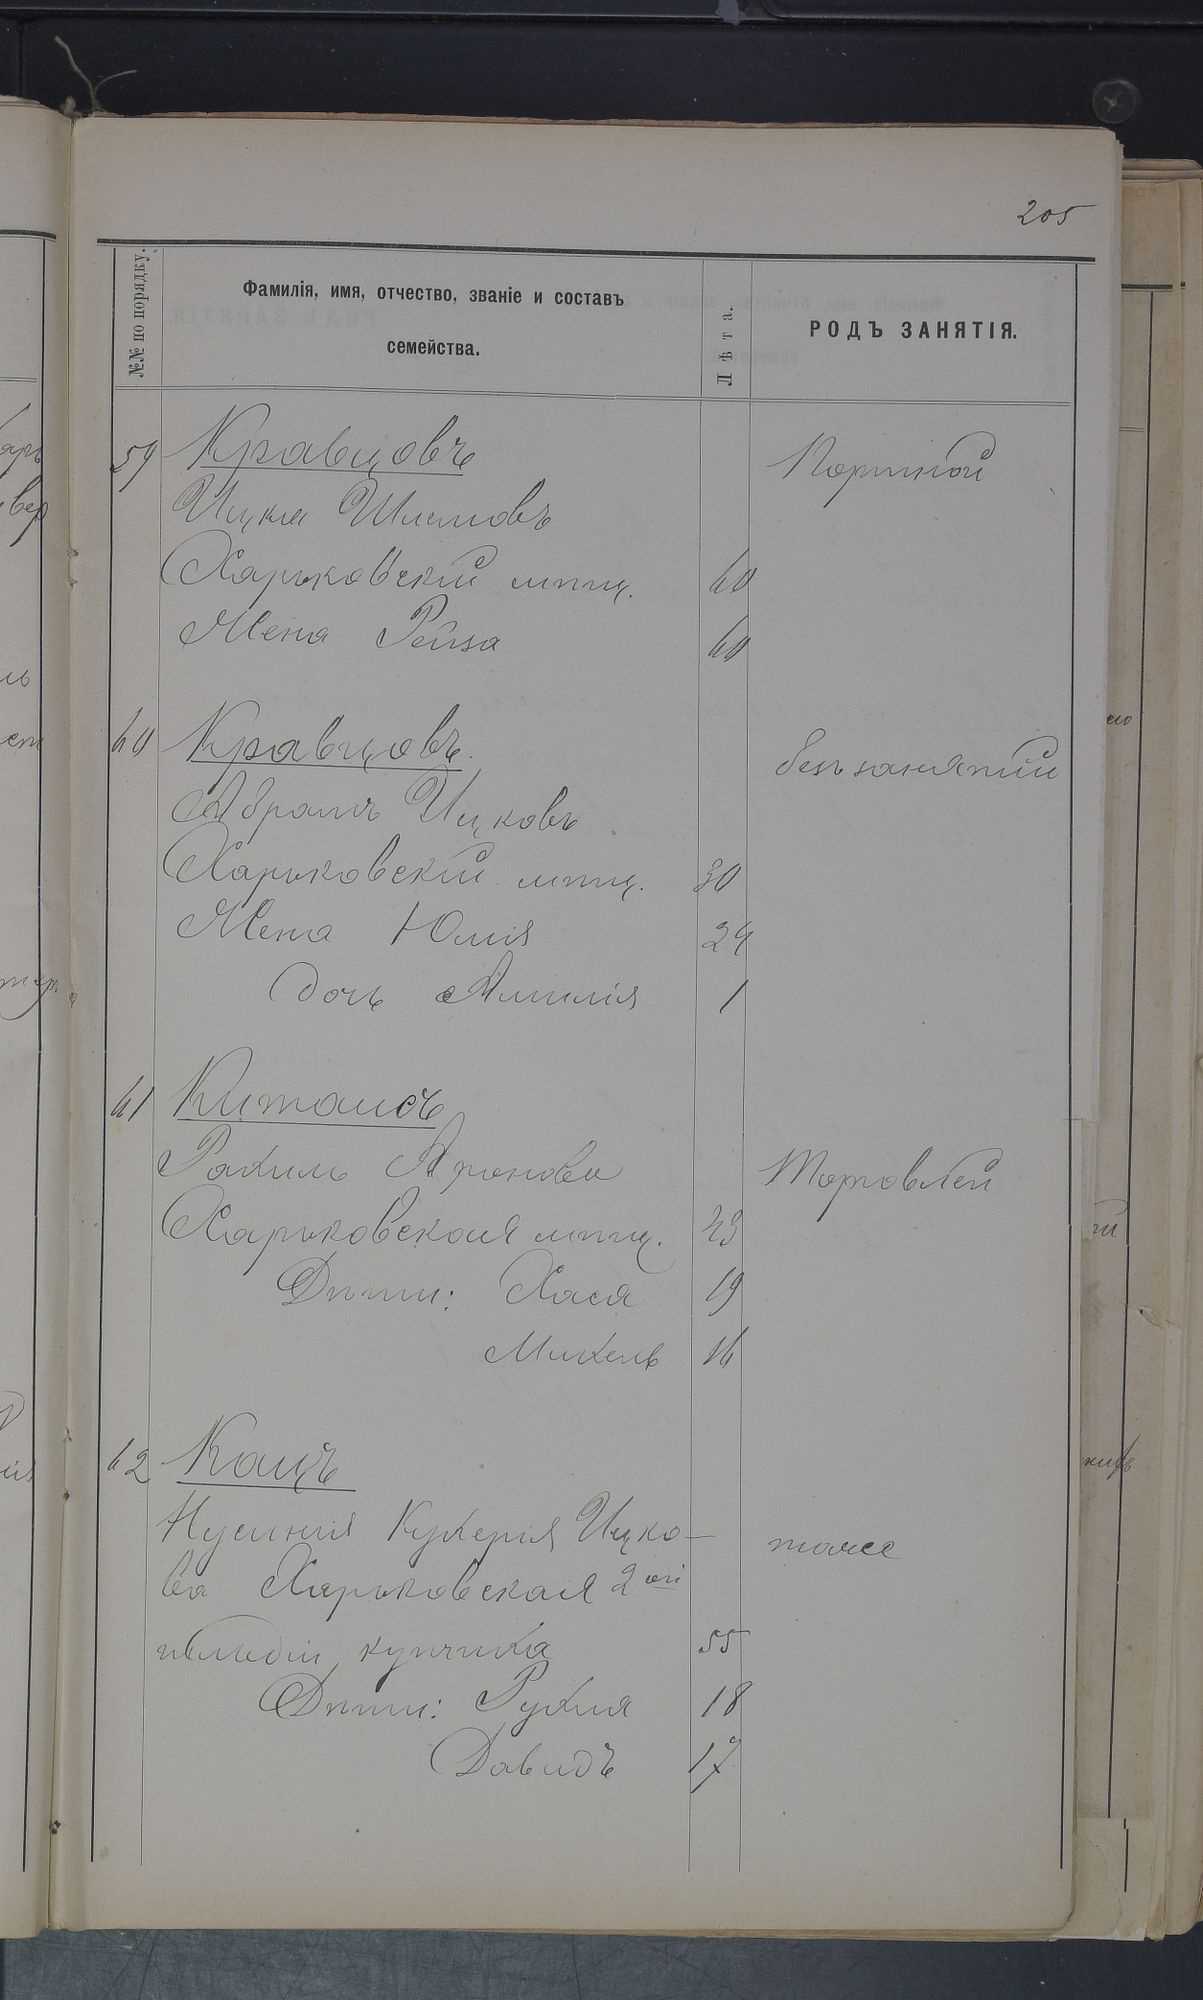 205
№№ по порядку.
Фамилія, имя, отчество, званіе и составъ
семейства.
Лѣта.
РОДЪ ЗАНЯТІЯ.
59 Кравцовъ Портной
Ицка Шлемовъ
Харьковскій мѣщ. 60
Жена Рейза 60
60 Кравцовъ. безъ занятій
Абрамъ Ицковъ
Харьковскій мѣщ. 30
Жена Юлія 24
дочь Амилія 1
61 Китаисъ
Рахиль Аронова Торговлей
Харьковская мѣщ. 43
Дѣти: Хася 19
Михель 16
62 Кацъ
Ицко- тоже
ва Харьковская 2ой
гильдіи купчиха 55
Дѣти: Рухля 18
Давидъ 17